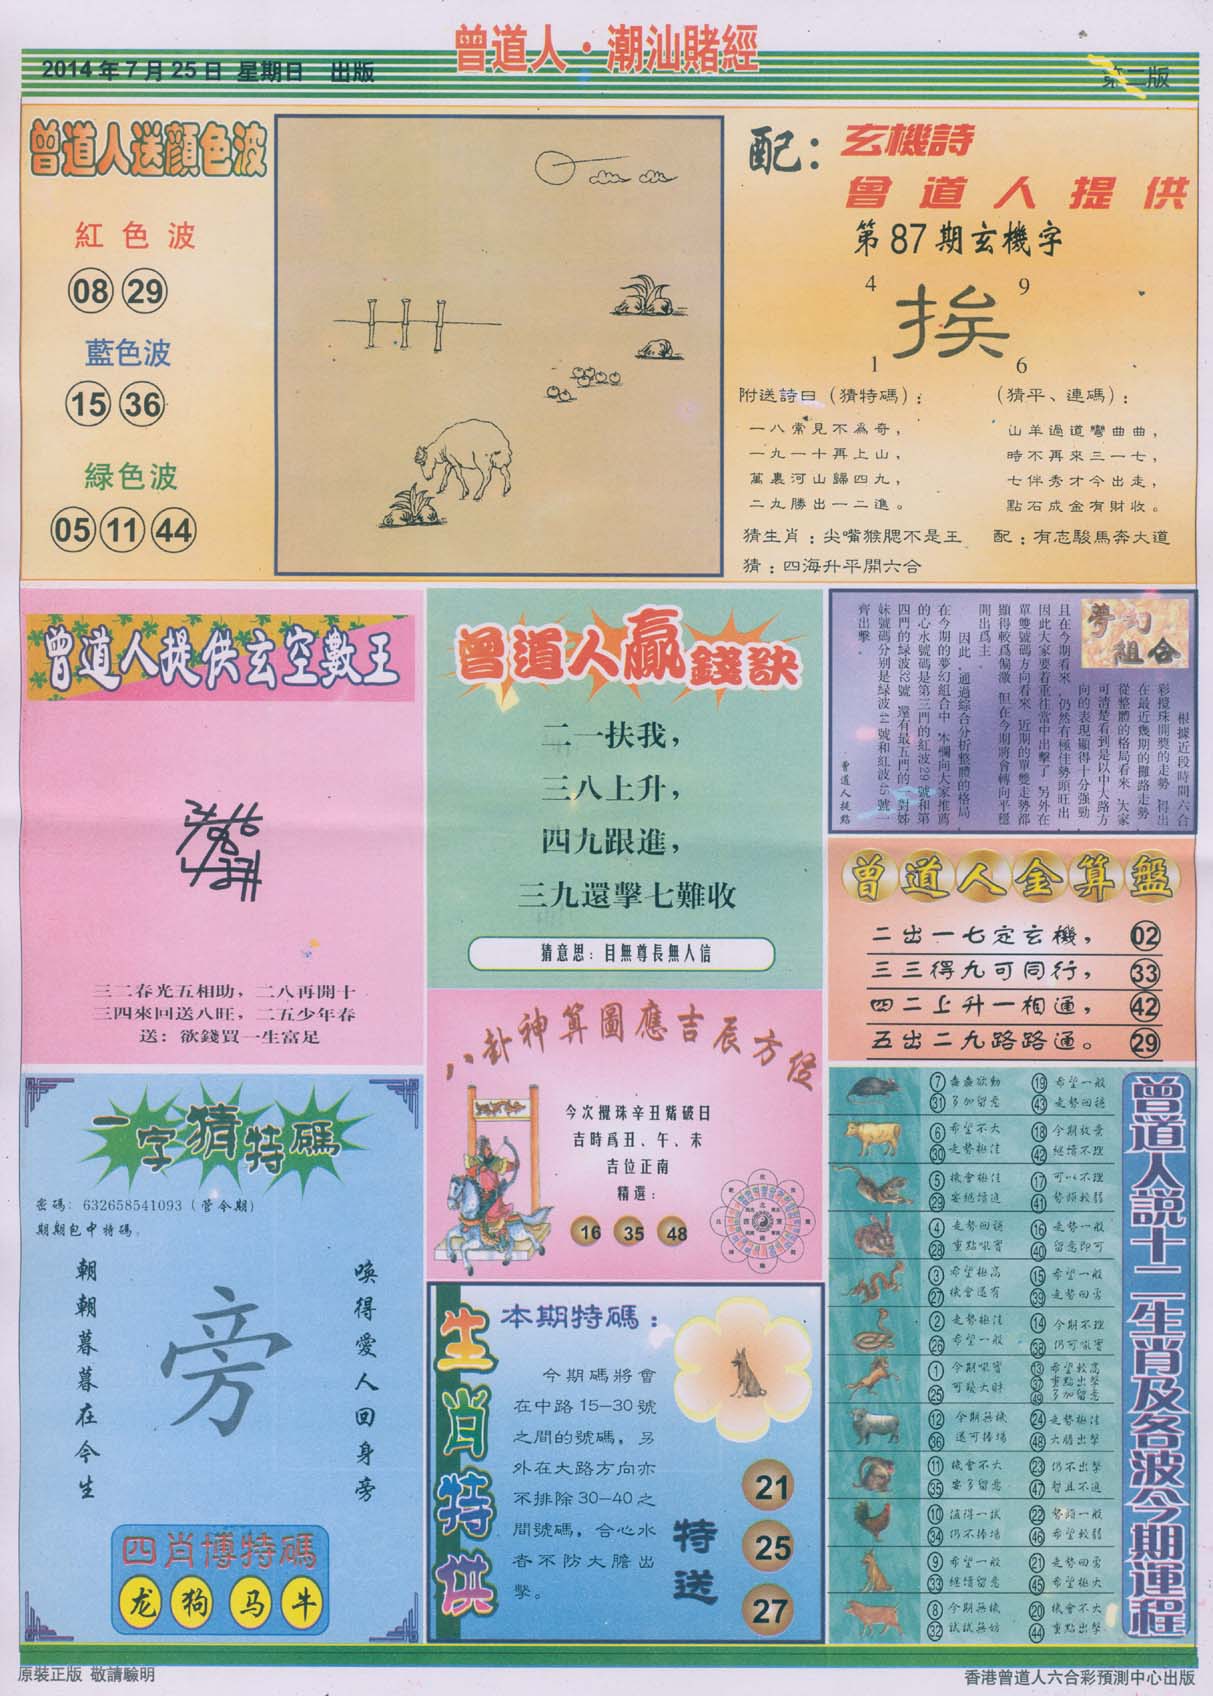 曾道人·潮汕賭經
2014年7月25日 星期日 出版
第二版
曾道人送顏色波
紅色波
08 29
藍色波
15 36
緑色波
05 11 44
配：
玄機詩
曾道人提供
第87期玄機字
4 9
挨
1 6
附送詩曰（猜特碼）：
一八常見不爲奇，
一九一十再上山，
萬裏河山歸四九，
二九勝出一二進。
（猜平、連碼）：
山羊過道彎曲曲，
時不再來三一七，
七伴秀才今出走，
點石成金有財收。
猜生肖：尖嘴猴腮不是王
配：有志駿馬奔大道
猜：四海升平開六合
曾道人提供玄空數王
三二春光五相助，二八再開十
三四來回送八旺，二五少年春
送：欲錢買一生富足
曾道人贏錢訣
二一扶我，
三八上升，
四九跟進，
三九還擊七難收
猜意思：目無尊長無人信
夢幻
組合
根據近段時間六合
彩攪珠開獎的走勢，得出
在最近幾期的攤路走勢
從整體的格局看來，大家
可清楚看到是以中大路方
向的表現顯得十分强勁，
且在今期看來，仍然有極佳勢頭旺出，
因此大家要着重往當中出擊了，另外在
單雙號碼方向看來，近期的單雙走勢都
顯得較爲偏激，但在今期將會轉向平穩
開出爲主。
因此，通過綜合分析整體的格局，
在今期的夢幻組合中，本欄向大家推薦
的心水號碼是第三門的紅波29號和第
四門的緑波32號，還有最五門的一對姊
妹號碼分别是緑波44號和紅波45號一
齊出擊。
曾道人提點
曾道人金算盤
二出一七定玄機， 02
三三得九可同行， 33
四二上升一相通， 42
五出二九路路通。 29
八卦神算圖應吉辰方位
今次攪珠辛丑觜破日
吉時爲丑、午、未
吉位正南
精選：
16 35 48
一字猜特碼
密碼：632658541093（管令期）
期期包中特碼。
唤得愛人回身旁
旁
朝朝暮暮在今生
四肖博特碼
龙 狗 马 牛
生肖特供
本期特碼：
今期碼將會
在中路15—30號
之間的號碼，另
外在大路方向亦
不排除30—40之
間號碼，合心水
者不防大膽出
擊。
特送
21
25
27
曾道人説十二生肖及各波今期運程
⑦ 蠢蠢欲動 ⑲ 希望一般
㉛ 多加留意 ㊸ 走勢回穩
⑥ 希望不大 ⑱ 今期放弃
㉚ 走勢極佳 ㊷ 繼續不理
⑤ 機會極佳 ⑰ 可以不理
㉙ 要繼續追 ㊶ 勢頭較弱
④ 走勢回穩 ⑯ 走勢一般
㉘ 重點吼實 ㊵ 留意即可
③ 希望極高 ⑮ 希望一般
㉗ 機會還有 ㊴ 走勢回勇
② 走勢極佳 ⑭ 今期不理
㉖ 希望一般 ㊳ 仍可吼實
① 今期吼實 ⑬ 希望較高
㊲ 重點出擊
㉕ 可發大財 ㊾ 多加留意
⑫ 今期無機 ㉔ 走勢極佳
㊱ 還可捧場 ㊽ 大膽出擊
⑪ 機會不大 ㉓ 仍不出擊
㉟ 要多留意 ㊼ 暫且不追
⑩ 值得一試 ㉒ 勢頭一般
㉞ 仍不捧場 ㊻ 希望較弱
⑨ 希望一般 ㉑ 走勢回勇
㉝ 繼續留意 ㊺ 希望極大
⑧ 今期無機 ⑳ 機會不大
㉜ 試試無妨 ㊹ 重點出擊
原裝正版 敬請驗明
香港曾道人六合彩預測中心出版